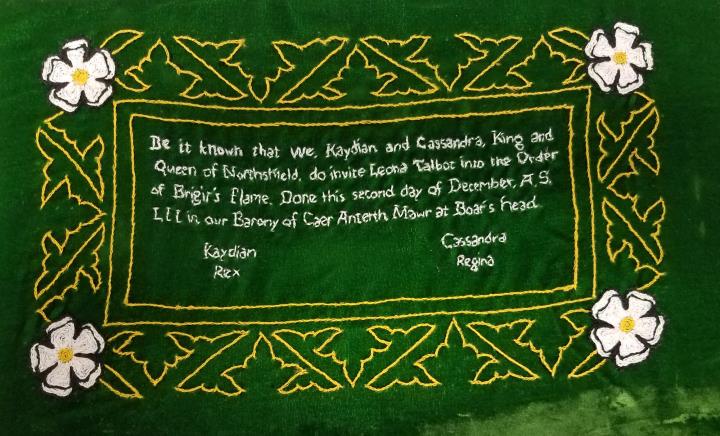 Be it known that We, Kaydian and Cassandra, King and
Queen of Northshield, do invite Leona Talbot into the Order
of Brigit's Flame. Done this second day of December, A.S.
LII in our Barony of Caer Anterth Mawr at Boar's Head.
Kaydian
Rex
Cassandra
Regina